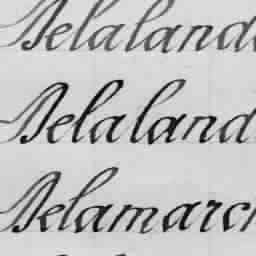 Delaland
Delaland
Delamarc